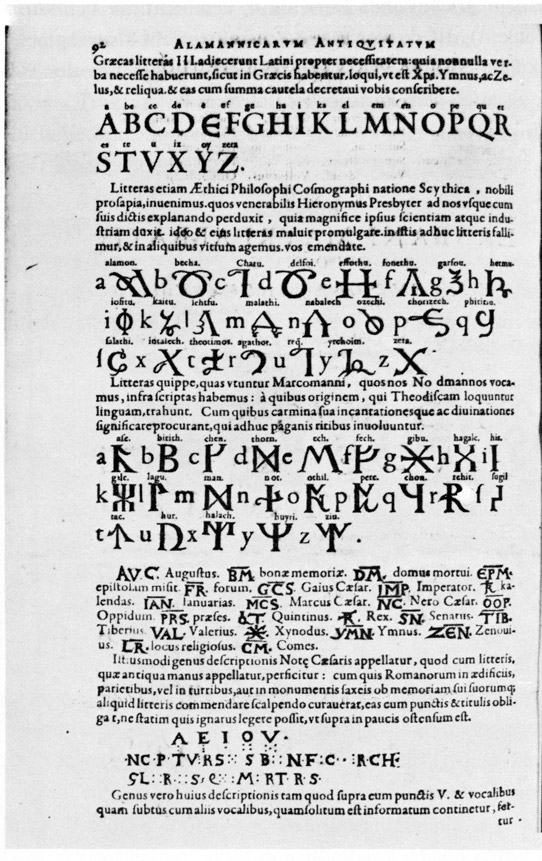 92 ALAMANNICARVM ANTIQVITATVM
Græcas litteras III adjecerunt Latini propter necessitatem: quia nonnulla ver-
ba necesse habuerunt, sicut in Græcis habentur, loqui, vt est Xps. Ymnus, ac Ze-
lus, & reliqua. & eas cum summa cautela decretaui vobis conscribere.
a be ce de e ef ge ha ka el em en o pe qu er
ABCDEFGHIKLMNOPQR
es te u ix oy zeta
STVXYZ.
Litteras etiam Æthici Philosophi Cosmographi natione Scythica, nobili
prosapia, inuenimus. quos venerabilis Hieronymus Presbyter ad nos vsque cum
suis dictis explanando perduxit, quia magnifice ipsius scientiam atque indu-
striam duxit. ideo & eius litteras maluit promulgare. in istis adhuc litteris falli-
mur, & in aliquibus vitium agemus. vos emendate.
alamon. becha. Chatu. delfoi. effothu. fonethu. garfou. hethmu.
a b c d e f g h
iositu. kaitu. ichtfu. malathi. nabalech ozechi. chorizech. phitirin.
i k l m n o p q
salathi. intalech. theotimos. agathor. req. yrchoim. zeta.
s x t r u y z
Litteras quippe, quas vtuntur Marcomanni, quos nos Nordmannos voca-
mus, infra scriptas habemus: à quibus originem, qui Theodiscam loquuntur
linguam, trahunt. Cum quibus carmina sua incantationesque ac diuinationes
significare procurant, qui adhuc paganis ritibus inuoluuntur.
asc. birith. chen. thorn. ech. fech. gibu. hagale. his.
a b c d e f g h i
gilc. lagu. man. not. othil. perc. chon. rehit. sugil
k l m n o p q r s
tac. hur. halach. huyri. ziu.
t u x y z
AVC. Augustus. BM. bonæ memoriæ. DM. domus mortui. EPM.
epistolam misit. FR. forum. GCS. Gaius Cæsar. IMP. Imperator. K ka-
lendas. IAN. Ianuarias. MCS. Marcus Cæsar. NC. Nero Cæsar. OOP.
Oppidum. PRS. præses. Quintinus. R. Rex. SN. Senatus. TIB.
Tiberius VAL. Valerius. Xynodus. YMN. Ymnus. ZEN. Zenoui-
us. LR. locus religiosus. CM. Comes.
Istiusmodi genus descriptionis Notę Cæsaris appellatur, quod cum litteris,
quæ antiqua manus appellatur, perficitur: cum quis Romanorum in ædificiis,
parietibus, vel in turribus, aut in monumentis saxeis ob memoriam sui suorumq;
aliquid litteris commendare scalpendo curauerat, eas cum punctis & titulis obli-
gat, ne statim quis ignarus legere possit, vt supra in paucis ostensum est.
A E I O V.
·NC·P·TV:RS:·: S·B::N·F:·C··:R·CH:
SL::R·::S:·::·M:·RT·R·S·
Genus vero huius descriptionis tam quod supra cum punctis V. & vocalibus
quam subtus cum aliis vocalibus, quam solitum est informatum continetur, fer-
tur.